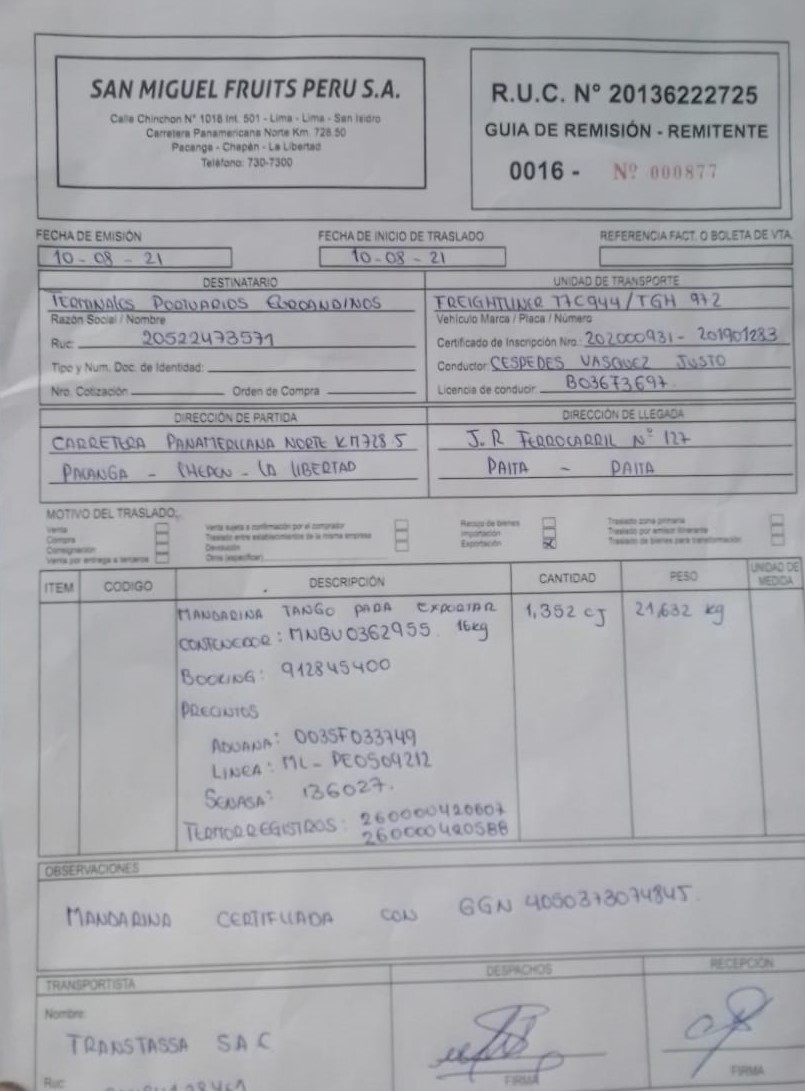 SAN MIGUEL FRUITS PERU S.A.
Calle Chinchon N° 1018 Int. 501 - Lima - Lima - San Isidro
Carretera Panamericana Norte Km. 728.50
Pacanga - Chepén - La Libertad
Teléfono: 730-7300
R.U.C. N° 20136222725
GUIA DE REMISIÓN - REMITENTE
0016 - Nº 000877
FECHA DE EMISIÓN
10 - 08 - 21
FECHA DE INICIO DE TRASLADO
10 - 08 - 21
REFERENCIA FACT. O BOLETA DE VTA.
DESTINATARIO
TERMINALES PORTUARIOS EUROANDINOS
Razón Social / Nombre
Ruc: 20522473571
Tipo y Num. Doc. de Identidad:
Nro. Cotización Orden de Compra
UNIDAD DE TRANSPORTE
FREIGHTLINER T7C944/TGH 972
Vehículo Marca / Placa / Número
Certificado de Inscripción Nro.: 202000931 - 201901283
Conductor: CESPEDES VASQUEZ JUSTO
Licencia de conducir: B03673697.
DIRECCIÓN DE PARTIDA
CARRETERA PANAMERICANA NORTE KM728.5
PACANGA - CHEPEN - LA LIBERTAD
DIRECCIÓN DE LLEGADA
J.R FERROCARRIL Nº 127
PAITA - PAITA
MOTIVO DEL TRASLADO:
Venta
Compra
Consignación
Venta por entrega a terceros
Venta sujeta a confirmación por el comprador
Traslado entre establecimientos de la misma empresa
Devolución
Otros (especificar)
Recojo de bienes
Importación
Exportación X
Traslado zona primaria
Traslado por emisor itinerante
Traslado de bienes para transformación
ITEM CODIGO DESCRIPCIÓN CANTIDAD PESO UNIDAD DE MEDIDA
MANDARINA TANGO PARA EXPORTAR 1,352 CJ 21,632 kg
CONTENEDOR: MNBU0362955. 16kg
BOOKING: 912845400
PRECINTOS
ADUANA: 0035F033749
LINEA: ML-PE0509212
SENASA: 136027.
TERMORREGISTROS: 260000420607
260000420588
OBSERVACIONES
MANDARINA CERTIFICADA CON GGN 4050373074845.
TRANSPORTISTA
Nombre:
TRANSTASSA SAC
Ruc:
DESPACHOS
FIRMA
RECEPCIÓN
FIRMA